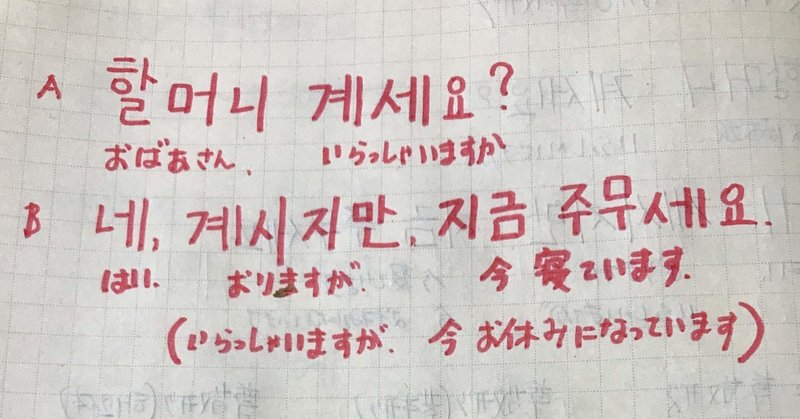 A 할머니 계세요?
おばあさん、 いらっしゃいますか
B 네, 계시지만, 지금 주무세요.
はい. おりますが. 今 寝ています.
(いらっしゃいますが. 今 お休みになっています)